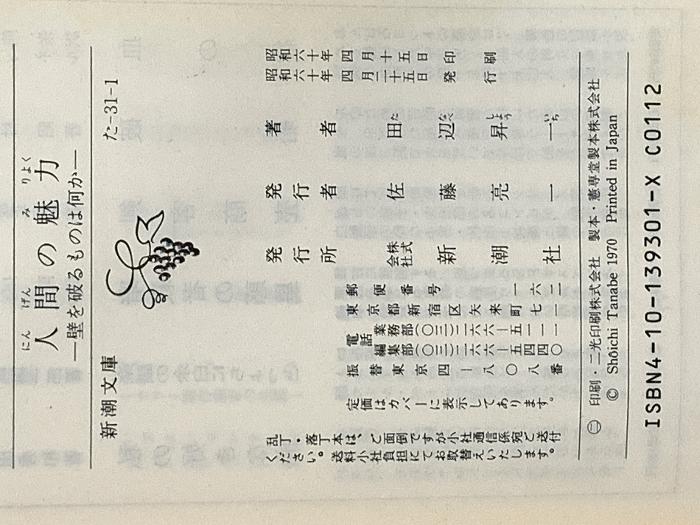 にん げん み りょく
人間の魅力
―壁を破るものは何か―
新潮文庫 た-31-1
昭和六十年四月十五日印刷
昭和六十年四月二十五日発行
著者 田辺昇一
た なべ しょう いち
発行者 佐藤亮一
発行所 株式会社 新潮社
郵便番号 一六二
東京都新宿区矢来町七一
電話 業務部(〇三)二六六―五一一一
編集部(〇三)二六六―五四四〇
振替東京四―八〇八番
定価はカバーに表示してあります。
乱丁・落丁本は、ご面倒ですが小社通信係宛ご送付
ください。送料小社負担にてお取替えいたします。
印刷・二光印刷株式会社 製本・憲専堂製本株式会社
© Shōichi Tanabe 1970 Printed in Japan
ISBN4-10-139301-X C0112